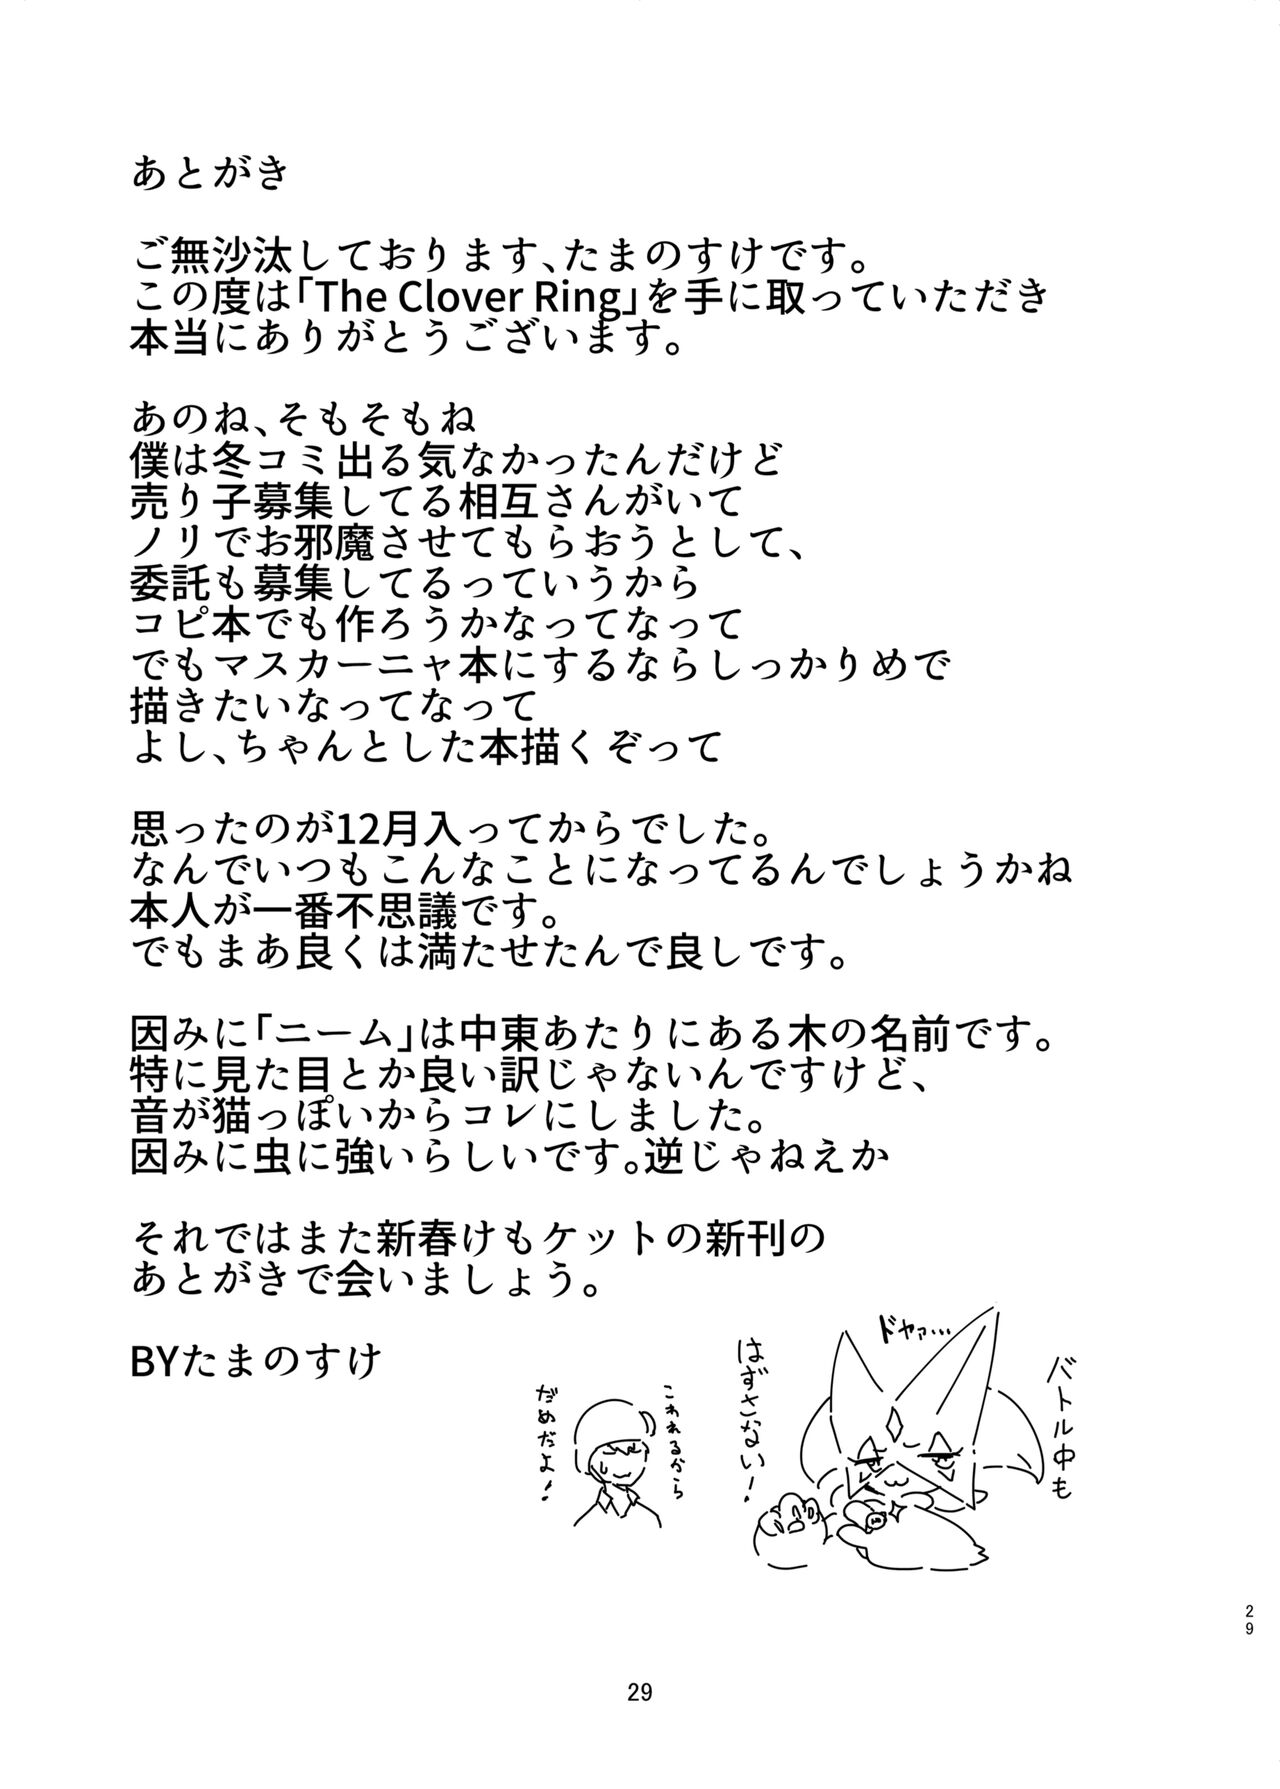 あとがき
ご無沙汰しております、たまのすけです。
この度は「The Clover Ring」を手に取っていただき
本当にありがとうございます。
あのね、そもそもね
僕は冬コミ出る気なかったんだけど
売り子募集してる相互さんがいて
ノリでお邪魔させてもらおうとして、
委託も募集してるっていうから
コピ本でも作ろうかなってなって
でもマスカーニャ本にするならしっかりめで
描きたいなってなって
よし、ちゃんとした本描くぞって
思ったのが12月入ってからでした。
なんでいつもこんなことになってるんでしょうかね
本人が一番不思議です。
でもまあ良くは満たせたんで良しです。
因みに「ニーム」は中東あたりにある木の名前です。
特に見た目とか良い訳じゃないんですけど、
音が猫っぽいからコレにしました。
因みに虫に強いらしいです。逆じゃねえか
それではまた新春けもケットの新刊の
あとがきで会いましょう。
BYたまのすけ
バトル中も
ドヤァ…
はずさない!
こわれるから
だめだよ!
29
29